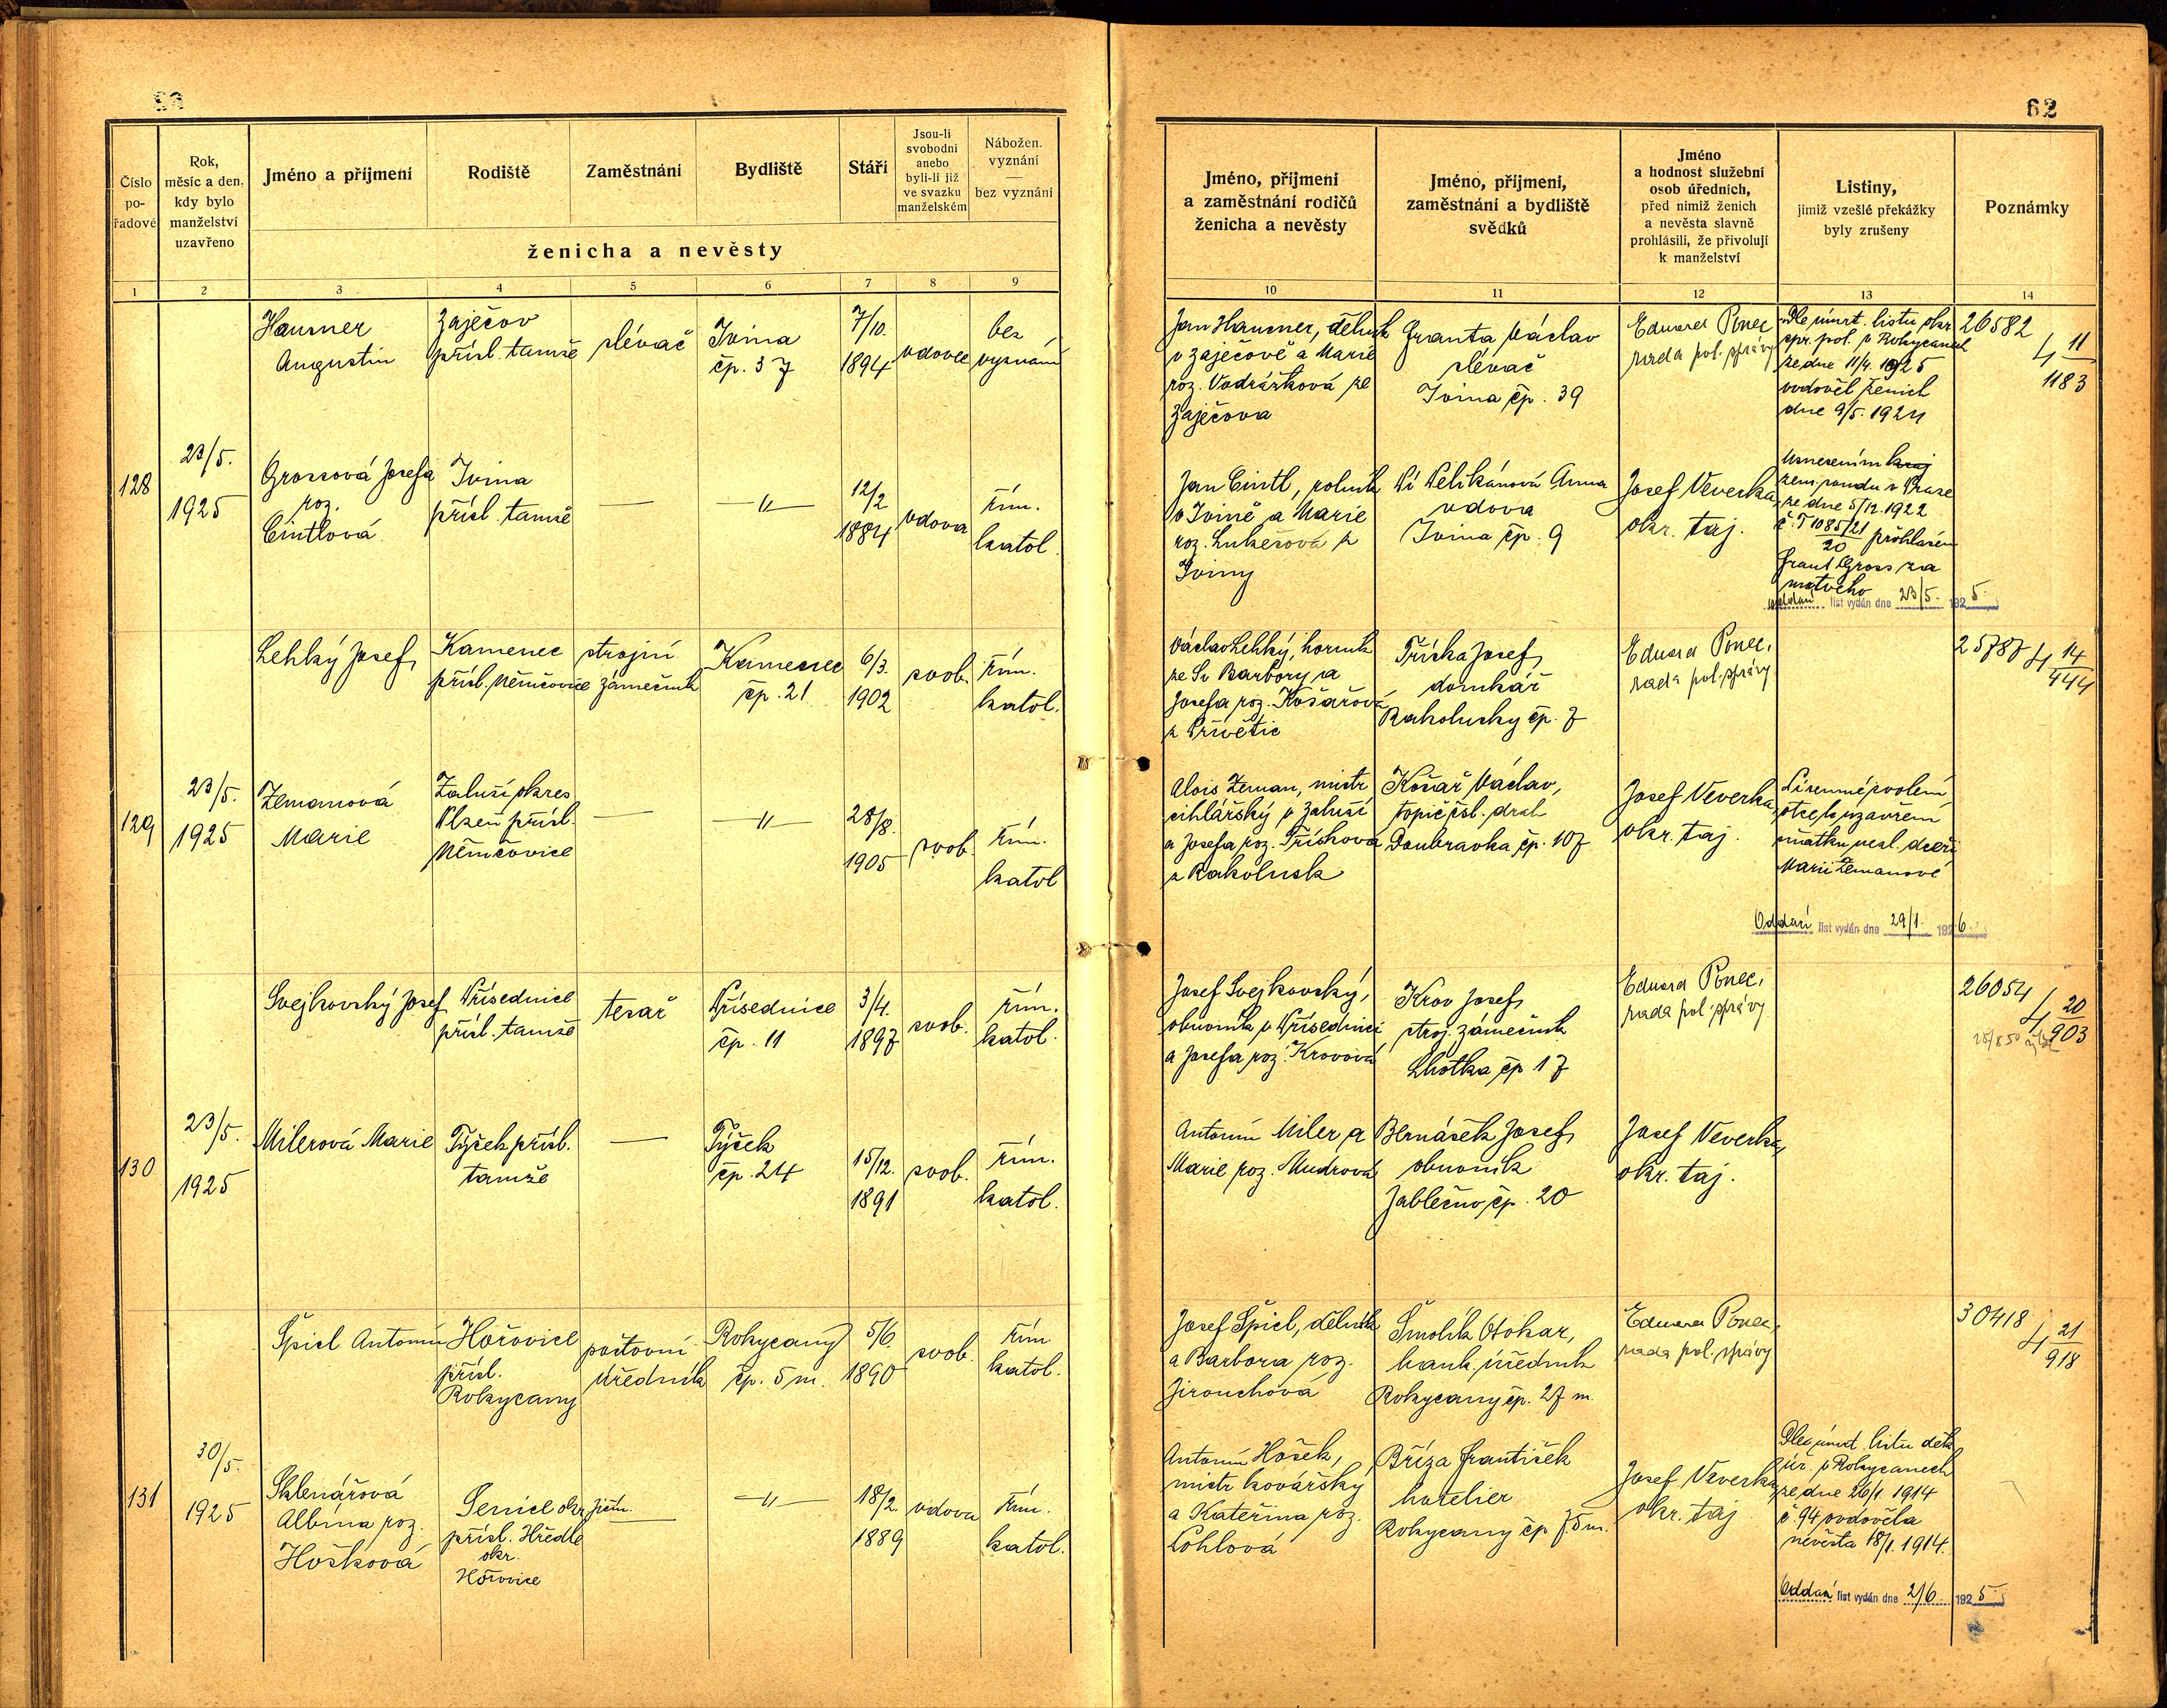 62
Číslo
po-
řadové
Rok,
měsíc a den,
kdy bylo
manželství
uzavřeno
Jméno a příjmení
Rodiště
Zaměstnání
Bydliště
Stáří
Jsou-li
svobodni
anebo
byli-li již
ve svazku
manželském
Nábožen.
vyznání
—
bez vyznání
ženicha a nevěsty
1 2 3 4 5 6 7 8 9
Jméno, příjmení
a zaměstnání rodičů
ženicha a nevěsty
Jméno, příjmení,
zaměstnání a bydliště
svědků
Jméno
a hodnost služební
osob úředních,
před nimiž ženich
a nevěsta slavně
prohlásili, že přivolují
k manželství
Listiny,
jimiž vzešlé překážky
byly zrušeny
Poznámky
10 11 12 13 14
128
23/5.
1925
Hausner
Augustin
Zaječov
přísl. tamže
slévač
Ivina
čp. 37
7/10.
1894
vdovec
bez
vyznání
Jan Hausner, dělník
v Zaječově a Marie
roz. Vodrážková ze
Zaječova
Franta Václav
slévač
Ivina čp. 39
Eduard Ponec
rada pol. správy
Dle úmrt. listu okr.
spr. pol. v Rokycanech
ze dne 11/4. 1925
ovdověl ženich
dne 9/5. 1924
26582
4 11
1183
Grossová Josefa
roz.
Cintlová
Ivina
přísl. tamže
—
—"—
12/2
1884
vdova
řím.
katol.
Jan Cintl, rolník
v Ivině a Marie
roz. Lukešová z
Iviny
Velikánová Anna
vdova
Ivina čp. 9
Josef Veverka,
okr. taj.
Usnesením kraj
zem. soudu v Praze
ze dne 5/12. 1922
č. T 1085/21
20 prohlášen
Frant. Gross za
mrtvého
oddací list vydán dne 23/5. 1925.
129
23/5.
1925
Lehký Josef
Kamenec
přísl. Němčovice
strojní
zámečník
Kamenec
čp. 21
6/3.
1902
svob.
řím.
katol.
Václav Lehký, horník
ze Sv. Barbory a
Josefa roz. Košařová
z Přívětic
Tříska Josef,
domkář
Rakolusky čp. 7
Eduard Ponec,
rada pol. správy
25787
4 14
444
Zemanová
Marie
Zaluší okres
Plzeň přísl.
Němčovice
—
—"—
28/8.
1905
svob.
řím.
katol
Alois Zeman, mistr
cihlářský v Zaluší
a Josefa roz. Třísková
z Rakolusk
Košař Václav,
topič čsl. drah
Doubravka čp. 107
Josef Veverka,
okr. taj.
Písemné povolení
otce k uzavření
sňatku nezl. dceři
Marii Zemanové
Oddací list vydán dne 29/1. 1926.
130
23/5.
1925
Svejkovský Josef
Přísednice
přísl. tamže
tesař
Přísednice
čp. 11
3/4.
1897
svob.
řím.
katol.
Josef Svejkovský,
obuvník v Přísednici
a Josefa roz. Krovová
Krov Josef,
stroj. zámečník
Lhotka čp 17
Eduard Ponec,
rada pol. správy
26054
4 20
903
Milerová Marie
Týček přísl.
tamže
—
Týček
čp. 24
15/12.
1891
svob.
řím.
katol.
Antonín Miler a
Marie roz. Mudrová
Bernášek Josef,
obuvník
Jablečno čp. 20
Josef Veverka,
okr. taj.
131
30/5.
1925
Špicl Antonín
Hořovice
přísl.
Rokycany
poštovní
úředník
Rokycany
čp. 5 m.
5/6.
1890
svob.
řím.
katol.
Josef Špicl, dělník
a Barbora roz.
Jirouchová
Šmolík Otokar,
bank. úředník
Rokycany čp. 27 m.
Eduard Ponec,
rada pol. správy
30418
4 21
918
Sklenářová
Albína roz.
Hošková
Senice okr. Jičín.
přísl. Hředle
okr.
Hořovice
—
—"—
18/2
1889
vdova
řím.
katol.
Antonín Hošek,
mistr kovářský
a Kateřina roz.
Lohlová
Bříza František
hotelier
Rokycany čp 75 m.
Josef Veverka,
okr. taj.
Dle úmrt. listu děk.
úř. v Rokycanech
ze dne 26/1. 1914
č. 94 ovdověla
nevěsta 18/1. 1914.
Oddací list vydán dne 2/6. 1925.